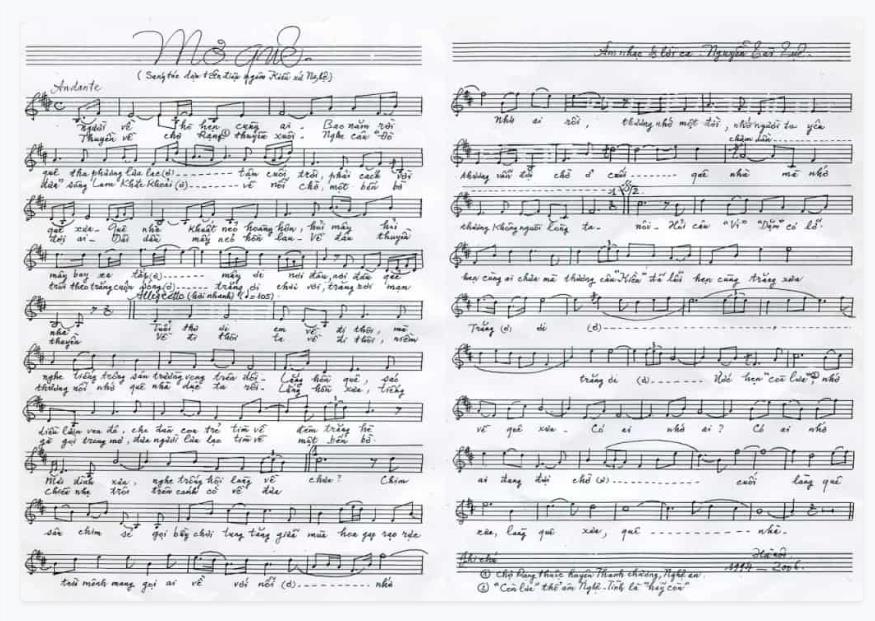 Mơ quê
(Sáng tác dựa trên điệu ngâm Kiều xứ Nghệ)
Andante
Người về thề hẹn cùng ai - Bao năm rời
Thuyền về chợ Rạng ① thuyền xuôi - Nghe câu "Đò
quê tha phương lưu lạc (ơ) tận cuối trời, phải cách vời
đưa" sông "Lam" khắc khoải (ơ) về nơi chờ, một bến bờ
quê xưa - Quê nhà khuất nẻo hoàng hôn, hỏi mây hỏi
đợi ai - Dãi dầu mấy nẻo hôn - Về đâu thuyền
mây bay xa tắp (ơ) mây đi nơi đâu, nơi đâu quê
trôi theo trăng (ơ) trăng ơi chơi vơi, trăng rơi mạn
Allegretto (Hơi nhanh) (♩=105)
nhà - Tuổi thơ ơi em về đi thôi, mà
thuyền Về đi thôi ta về đi thôi, niềm
nghe tiếng trống sân trường vọng trên đồi - Lắng hồn quê, sáo
thương nỗi nhớ quê nhà dục ta rồi - Lắng hồn xưa, tiếng
diều van đó, cho dẫn con trẻ tìm về đêm trăng hè
gà gọi trong mơ, đưa người lưu lạc tìm về một bến bờ
Mái đình xưa, nghe trống hội làng về chưa? Chim
Chiều nhẹ trôi trên cánh cò về đưa
sâu chim sẻ gọi bầy chơi tung tăng giữa mùa hoa gạo rạo rực
trời mênh mang gọi ai về với nỗi (ơ) nhớ
Âm nhạc & lời ca - Nguyễn
Nhớ ai rồi, thương nhớ một đời, nhớ người ta yêu
chậm dần
thương vẫn đợi chờ ở cuối quê nhà mà nhớ
1. 2.
thương không người lòng ta - nôi - Hát câu "Ví" "Dặm" có lỡ
hẹn cùng ai chưa mà thương câu "Kiều" để lỗi hẹn cùng trăng xưa
Trăng (ơ) ơi (ơ)
trăng ơi (ơ) Ước hẹn "còn lửa" ② nhớ
về quê xưa - Có ai nhớ ai? Có ai nhớ
ai đang đợi chờ (ơ) cuối làng quê
xưa, làng quê xưa, quê nhà -
Ghi chú
Hà Nội
1994 - 2006.
① Chợ Rạng thuộc huyện Thanh Chương, Nghệ An.
② "Còn lửa" thổ âm Nghệ - Tĩnh là "hãy còn"